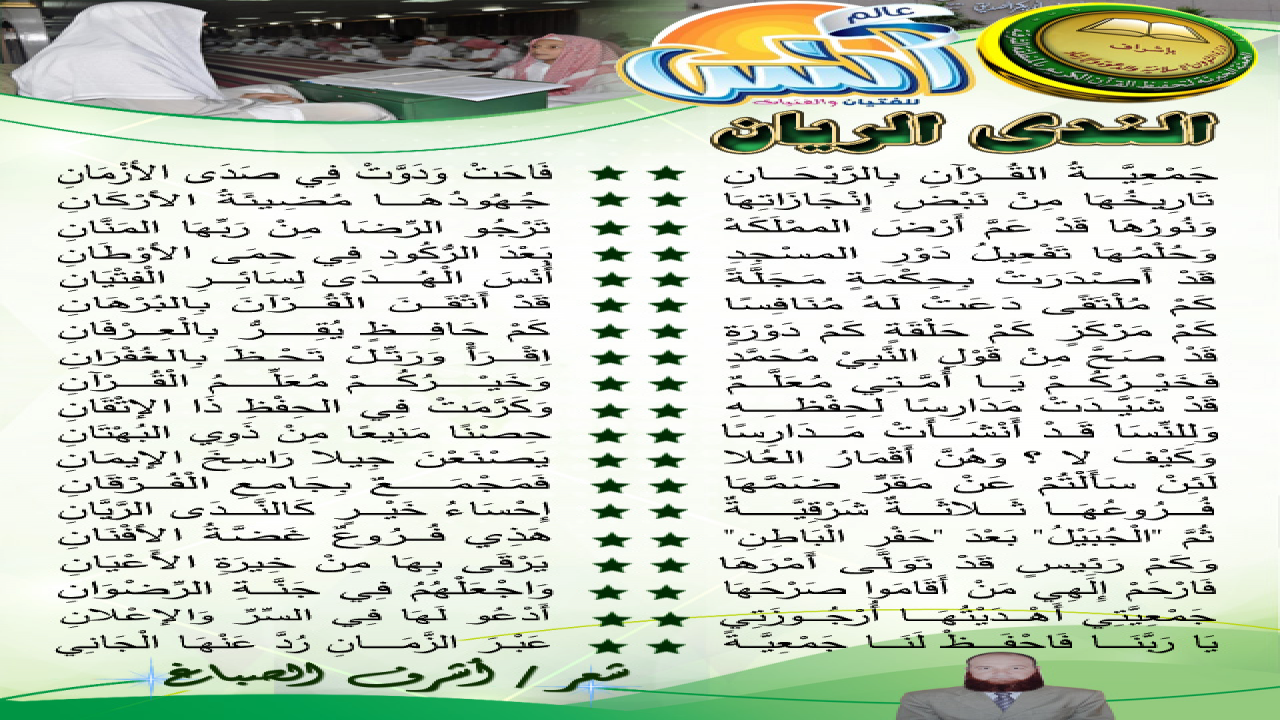 عالم
أنس
للفتيان والفتيات
إشراف
الندى الريان
جَمْعِيَّةُ القُرْآنِ بِالرَّيْحَانِ ★ ★ فَاحَتْ وَدَوَّتْ فِي صَدَى الأزْمانِ
تَارِيخُهَا مِنْ نَبْضِ إِنْجَازَاتِهَا ★ ★ جُهُودُهَا مُضِيئَةُ الأرْكَانِ
وَنُورُهَا قَدْ عَمَّ أَرْضَ الممْلَكَهْ ★ ★ تَرْجُو الرِّضَا مِنْ رَبِّهَا المنَّانِ
وَحُلْمُهَا تَفْعِيلُ دَوْرِ المسْجِدِ ★ ★ بَعْدَ الرُّكُودِ في حِمَى الأوْطَانِ
قَدْ أَصْدَرَتْ بِحِكْمَةٍ مَجَلَّةً ★ ★ أُنْسَ الْهُدَى لِسَائِرِ الْفِتْيَانِ
كَمْ مُلْتَقًى دَعَتْ لَهُ مُنَافِسًا ★ ★ قَدْ أَتْقَنَ الْقُرْآنَ بِالبُرْهَانِ
كَمْ مَرْكَزٍ كَمْ حَلْقَةٍ كَمْ دَوْرَةٍ ★ ★ كَمْ حَافِظٍ يُقِرُّ بِالْعِرْفَانِ
قَدْ صَحَّ مِنْ قَوْلِ النَّبِيْ مُحَمَّدٍ ★ ★ اِقْرَأْ وَرَتِّلْ تَحْظَ بِالغُفْرَانِ
فَخَيْرُكُمْ يَا أُمَّتِي مُعَلَّمٌ ★ ★ وَخَيْرُكُمْ مُعَلِّمُ الْقُرْآنِ
قَدْ شَيَّدَتْ مَدَارِسًا لَحِفْظِهِ ★ ★ وَكَرَّمَتْ فِي الحِفْظِ ذَا الإتْقَانِ
وَللنِّسَا قَدْ أَنْشَأَتْ مَدَارِسًا ★ ★ حِصْنًا مَنِيعًا مِنْ ذَوِي البُهْتَانِ
وَكَيْفَ لا ؟ وَهُنَّ أَقْمَارُ العُلا ★ ★ يَصْنَعْنَ جِيلا رَاسِخَ الإيمَانِ
لَئِنْ سَأَلْتُمْ عَنْ مَقَرٍّ ضَمَّهَا ★ ★ فَمَجْمَعٌ بِجَامِعِ الْفُرْقَانِ
فُرُوعُهَا ثَلاثَةٌ شَرْقِيَّةٌ ★ ★ إِحْسَاءُ خَيْرٍ كَالنَّدَى الرَّيَّانِ
ثُمَّ "الْجُبَيْلُ" بَعْدَ "حَفْرِ الْبَاطِنِ" ★ ★ هَذِي فُرُوعٌ غَضَّةُ الأَفْنَانِ
وَكَم رَئِيسٍ قَدْ تَوَلَّى أَمْرَهَا ★ ★ يَرْقَى بِها مِنْ خِيرَةِ الأَعْيَانِ
فَارْحَمْ إِلَهِي مَنْ أَقَامَوا صَرْحَهَا ★ ★ وَاجْعَلْهُمُ فِي جَنَّةِ الرِّضْوَانِ
جَمْعِيَّتِي أَهْدَيْتُهَا أُرْجُوزَتِي ★ ★ أَدْعُو لَهَا فِي السِّرِّ وَالإعْلانِ
يَا رَبَّنَا فَاحْفَظْ لَنَا جَمْعِيَّةً ★ ★ عَبْرَ الزَّمَانِ رُدَّ عَنْهَا الْجَانِي
شعر / أشرف الصباغ